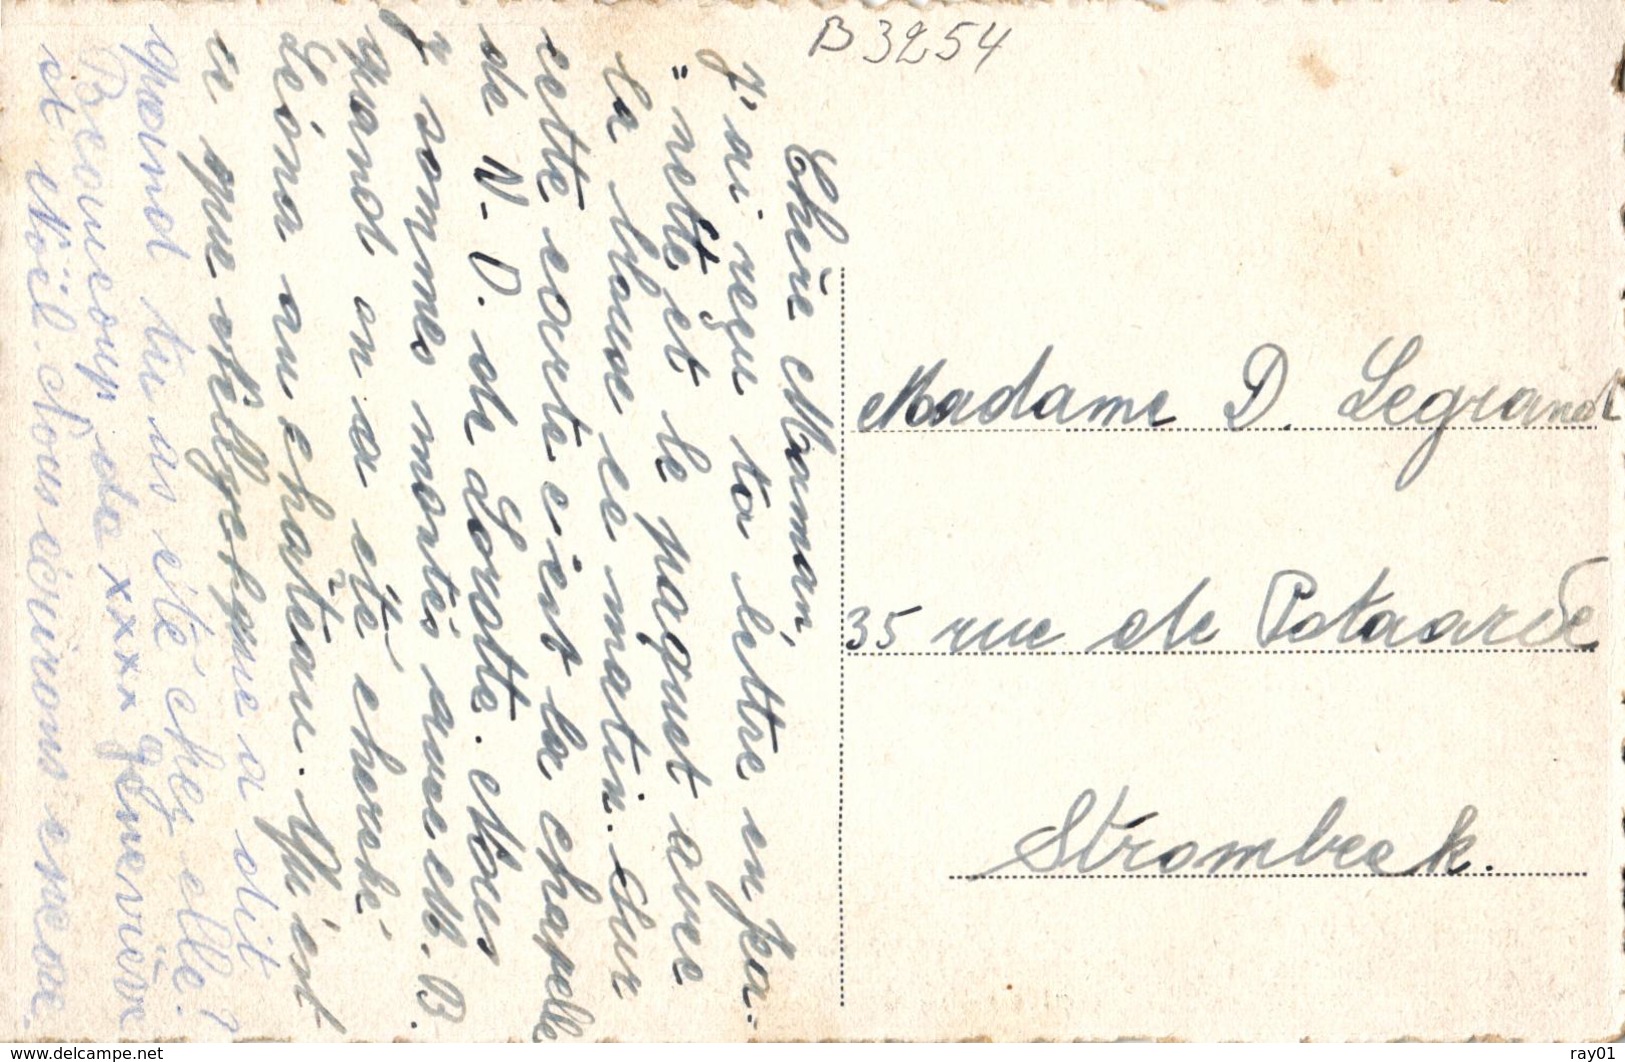 B 3254
Chère Maman,
J'ai reçu ta lettre en
" nette et le paquet avec
la blouse ce matin. Sur
cette carte c'est la chapelle
de N-D. de Lorette. Nous
y sommes montés avec M. B.
quand on a été cherché
Léona au château. Qu'est
ce que a dit
quand tu as été chez elle?
Beaucoup de xxxx Geneviève
et Noël. Nous écrirons encore.
Madame D. Legrand
35 rue de Potaarde
Strombeek.
www.delcampe.net
ray01